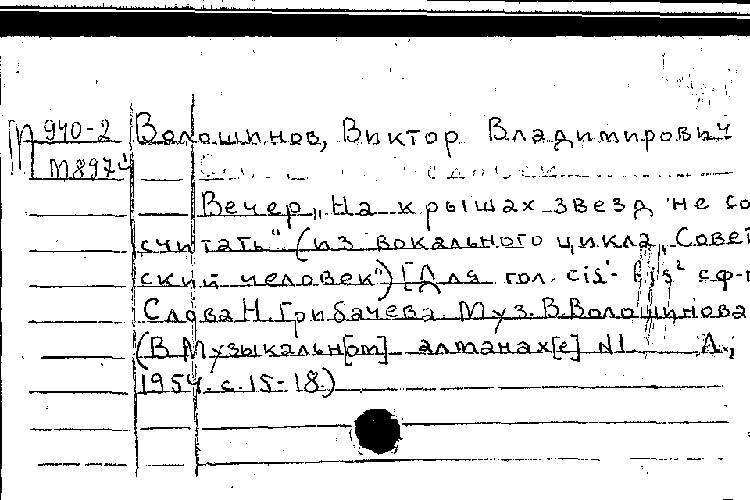 940-2 Волошинов, Виктор Владимирович
М897ч
Вечер „На крышах звезд не со
считать" (из вокального цикла „Совет
ский человек") [Для гол. cis¹- gis² с ф-п
Слова Н. Грибачева. Муз. В. Волошинова
(В Музыкальн[ом] алманах[е] №1 Л.,
1954. с. 15-18.)